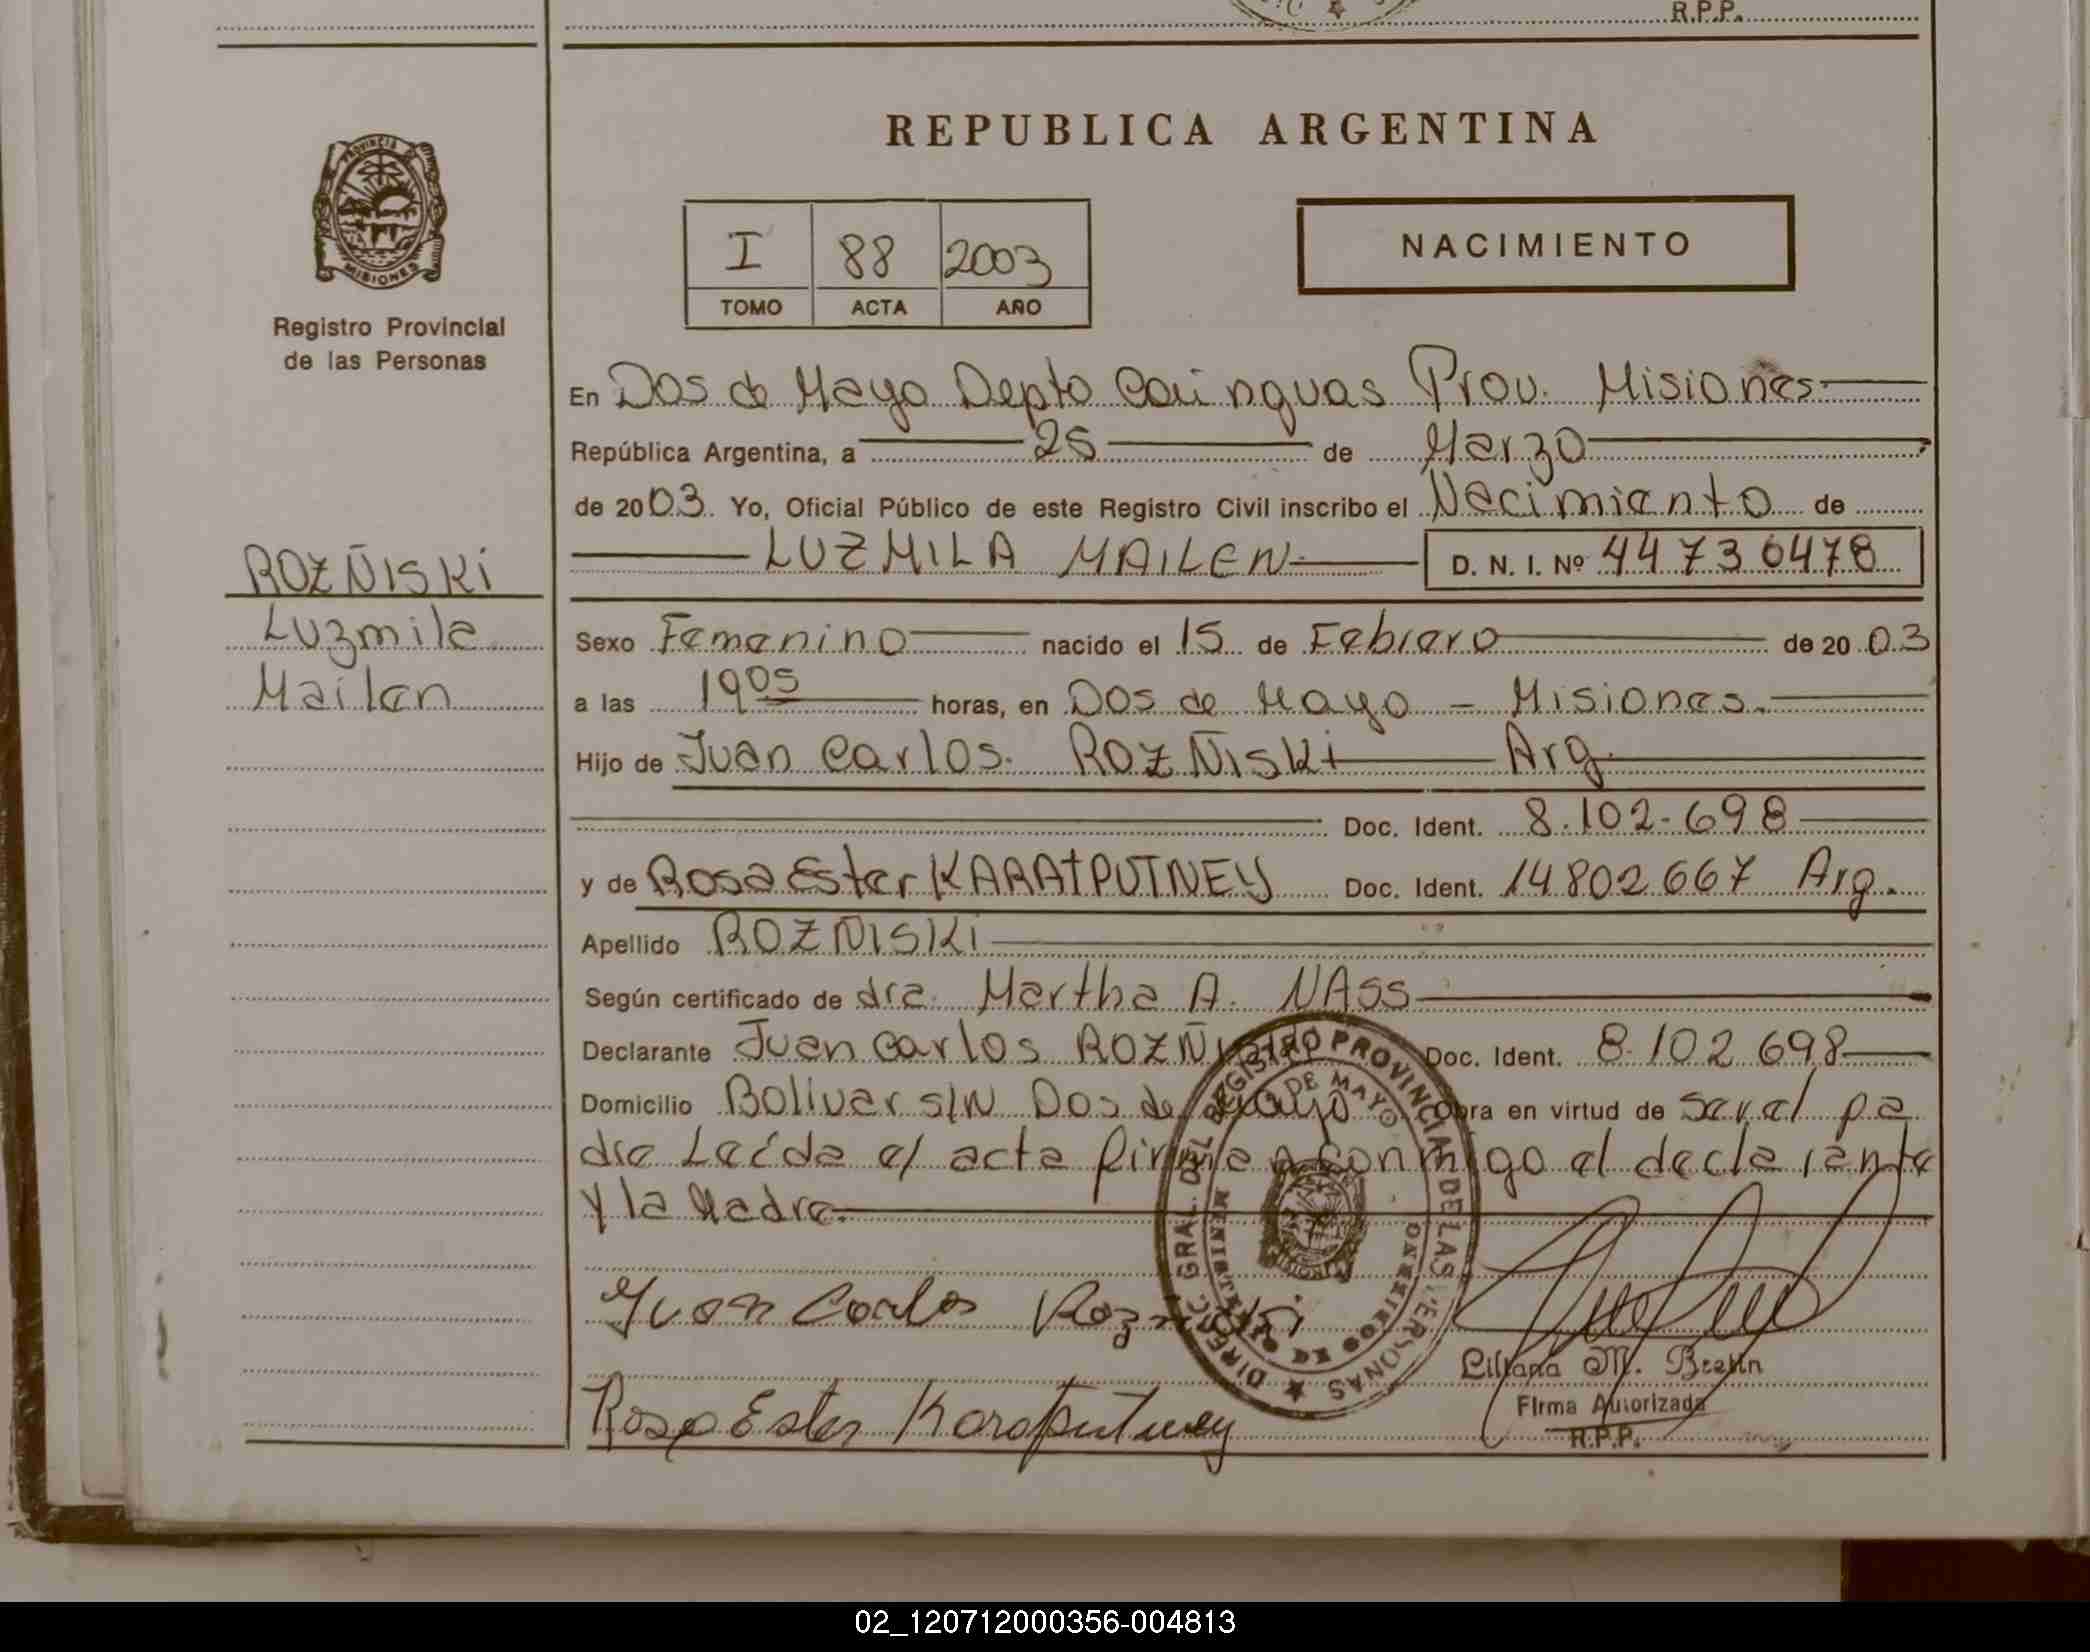 R.P.P.
REPUBLICA ARGENTINA
PROVINCIA DE MISIONES
I 88 2003
TOMO ACTA AÑO
NACIMIENTO
Registro Provincial
de las Personas
En Dos de Mayo Depto Cainguas Prov. Misiones
República Argentina, a 25 de Marzo
de 2003. Yo, Oficial Público de este Registro Civil inscribo el Nacimiento de
LUZMILA MAILEN D. N. I. Nº 44730478
ROZÑISKI
Luzmila
Mailen
Sexo Femenino nacido el 15 de Febrero de 2003
a las 19 05 horas, en Dos de Mayo - Misiones.
Hijo de Juan Carlos. ROZÑISKI Arg.
Doc. Ident. 8.102.698
y de Rosa Ester KARATPUTNEY Doc. Ident. 14802667 Arg.
Apellido ROZÑISKI
Según certificado de dra. Martha A. NASS
Declarante Juan Carlos ROZÑISKI Doc. Ident. 8.102.698
Domicilio Bolivar s/N Dos de Mayo Obra en virtud de ser el pa
dre Leída el acta firman conmigo el declarante
y la Madre.
DIREC. GRAL. DEL REGISTRO PROVINCIAL DE LAS PERSONAS
DE MAYO
Juan Carlos Rozñiski
Rosa Ester Karatputney
Liliana M. Brelin
Firma Autorizada
R.P.P.
02_120712000356-004813